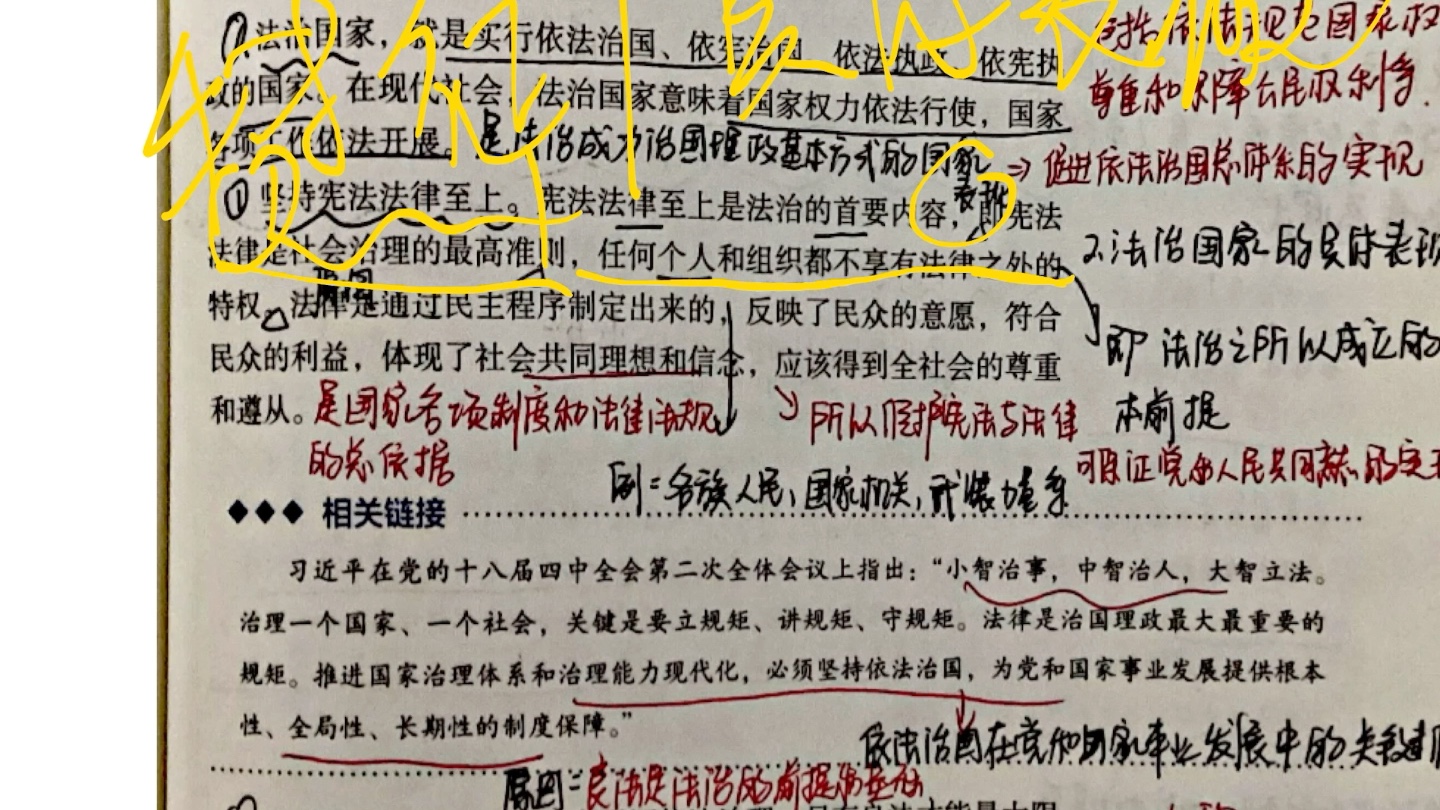 包括依法规范国家权
法治国家，就是实行依法治国、依宪治国、依法执政、依宪执
政的国家。在现代社会，法治国家意味着国家权力依法行使，国家
尊重和保障公民权利等.
各项工作依法开展。是法治成为治国理政基本方式的国家
⇒ 促进依法治国总体系的实现
① 坚持宪法法律至上。宪法法律至上是法治的首要内容，即宪法
表现
法律是社会治理的最高准则，任何个人和组织都不享有法律之外的
2.法治国家的具体表现
原因
特权。法律是通过民主程序制定出来的，反映了民众的意愿，符合
即 法治之所以成立的
民众的利益，体现了社会共同理想和信念，应该得到全社会的尊重
本前提
和遵从。是国家各项制度和法律法规
的总依据
所以维护宪法与法律
可保证党和人民共同意志的实现
例=各族人民，国家机关，武装力量等
◆◆◆ 相关链接
习近平在党的十八届四中全会第二次全体会议上指出：“小智治事，中智治人，大智立法。
治理一个国家、一个社会，关键是要立规矩、讲规矩、守规矩。法律是治国理政最大最重要的
规矩。推进国家治理体系和治理能力现代化，必须坚持依法治国，为党和国家事业发展提供根本
性、全局性、长期性的制度保障。”
依法治国在党和国家事业发展中的关键
原因=良法是法治的前提和基础